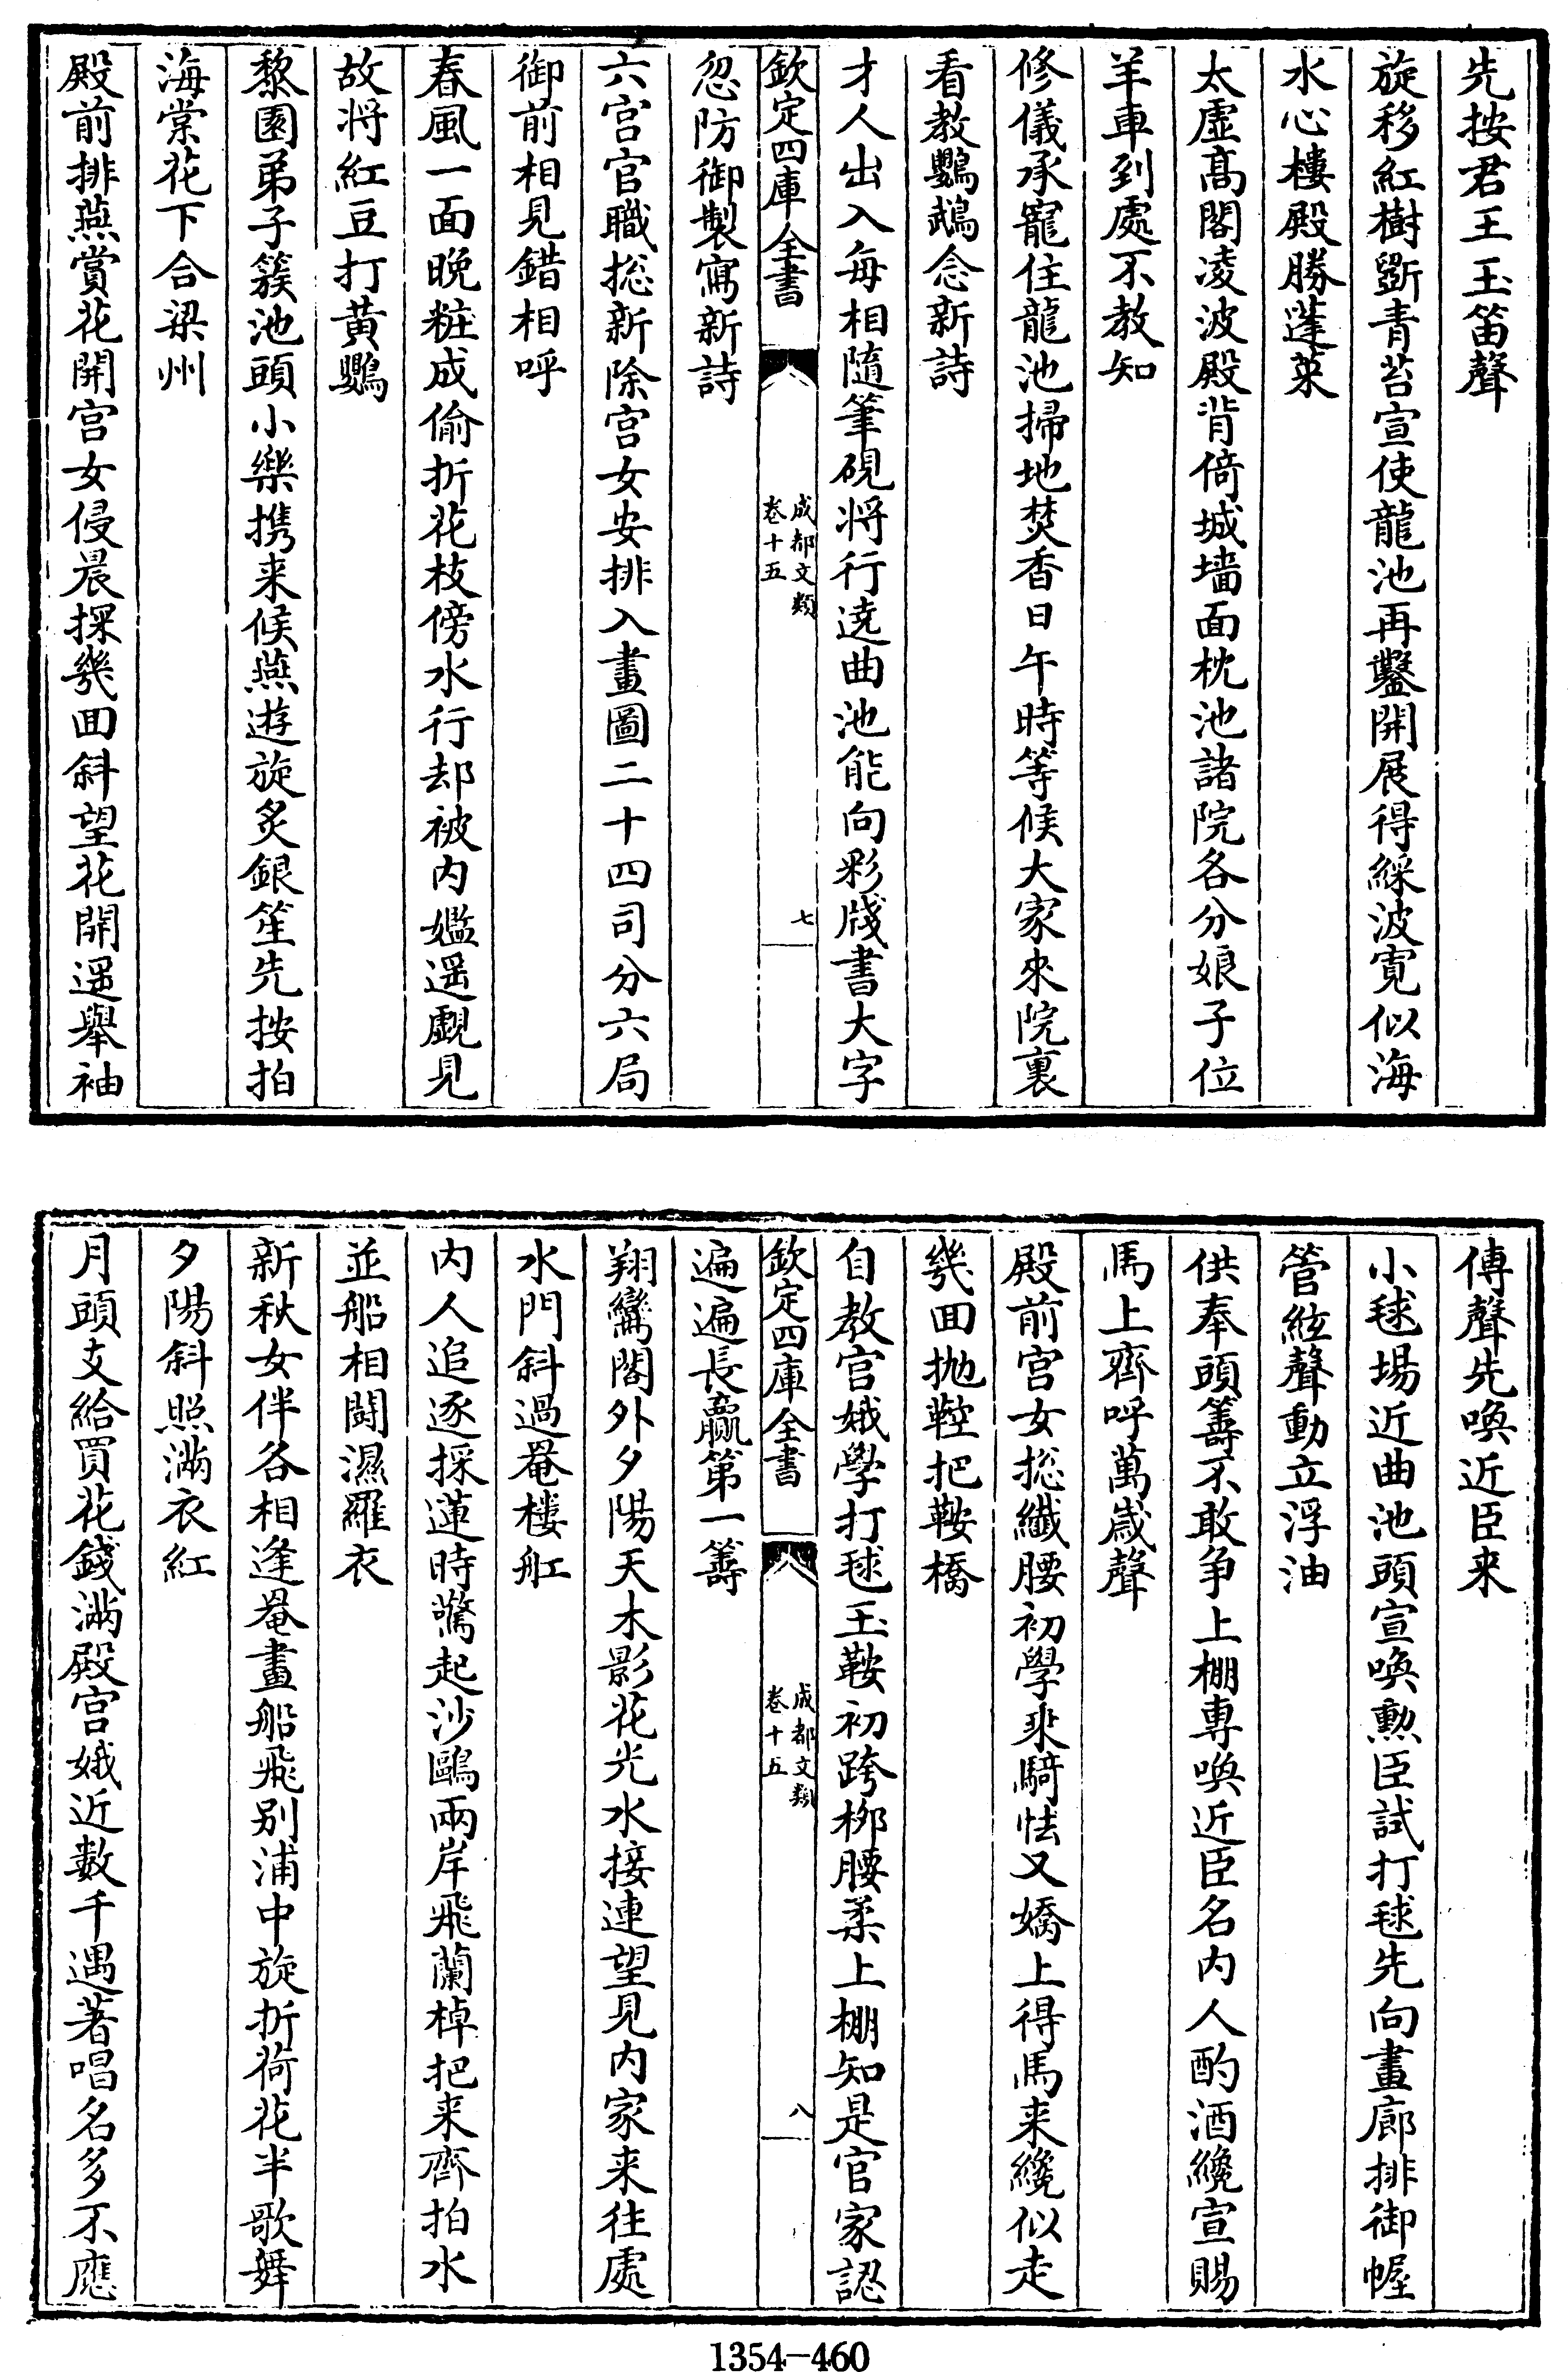 先按君王玉笛聲
旋移紅樹斵青苔宣使龍池再鑿開展得綵波寛似海
水心樓殿勝蓬萊
太虛髙閣凌波殿背倚城墻面枕池諸院各分娘子位
羊車到處不教知
修儀承寵住龍池掃地焚香日午時等候大家來院裏
看教鸚鵡念新詩
才人出入每相隨筆硯将行遶曲池能向彩牋書大字
欽定四庫全書
成都文類
卷十五
七
忽防御製寫新詩
六宫官職捴新除宫女安排入畫圖二十四司分六局
御前相見錯相呼
春風一面晚粧成偷折花枝傍水行却被内㜮遥覷見
故将紅豆打黃鸚
黎園弟子簇池頭小樂攜来候燕遊旋炙銀笙先按拍
海棠花下合梁州
殿前排燕賞花開宫女侵晨探幾回斜望花開遥舉袖
傳聲先喚近臣来
小毬場近曲池頭宣喚勲臣試打毬先向畫廊排御幄
管絃聲動立浮油
供奉頭籌不敢争上棚専喚近臣名内人酌酒纔宣賜
馬上齊呼萬嵗聲
殿前宫女捴纎腰初學乗騎怯又嬌上得馬来纔似走
幾回抛鞚把鞍橋
自教宫娥學打毬玉鞍初跨栁腰柔上棚知是官家認
欽定四庫全書
成都文類
卷十五
八
遍遍長贏第一籌
翔鸞閣外夕陽天木影花光水接連望見内家来往處
水門斜過罨樓舡
内人追逐採蓮時驚起沙鷗兩岸飛蘭棹把来齊拍水
並船相鬭濕羅衣
新秋女伴各相逢罨畫船飛别浦中旋折荷花半歌舞
夕陽斜照滿衣紅
月頭支給買花錢滿殿宫娥近数千遇著唱名多不應
1354-460